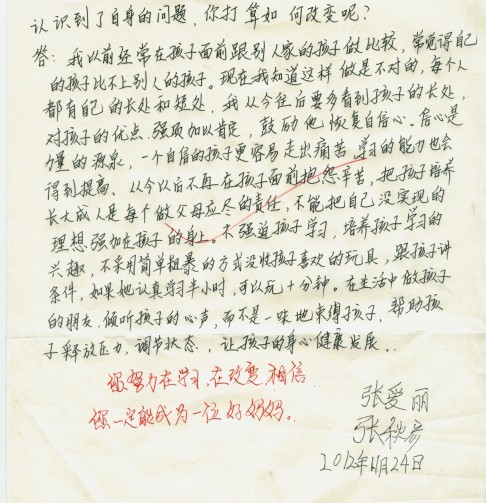 认识到了自身的问题，你打算如何改变呢？
答：我以前经常在孩子面前跟别人家的孩子做比较，常觉得自己
的孩子比不上别人的孩子。现在我知道这样做是不对的，每个人
都有自己的长处和短处，我从今往后要多看到孩子的长处，
对孩子的优点、强项加以肯定，鼓励他恢复自信心。信心是
力量的源泉，一个自信的孩子更容易走出痛苦，学习的能力也会
得到提高、从今以后不再在孩子面前抱怨辛苦，把孩子培养
长大成人是每个做父母应尽的责任，不能把自己没实现的
理想强加在孩子的身上。不强迫孩子学习，培养孩子学习的
兴趣，不采用简单粗暴的方式没收孩子喜欢的玩具，跟孩子讲
条件，如果她认真学习半小时，可以玩十分钟。在生活中做孩子
的朋友，倾听孩子的心声，而不是一味地束缚孩子，帮助孩
子释放压力，调节状态，让孩子的身心健康发展。
您努力在学习，在改变，相信
您一定能成为一位好妈妈。
张爱丽
张秋彦
2012年11月24日